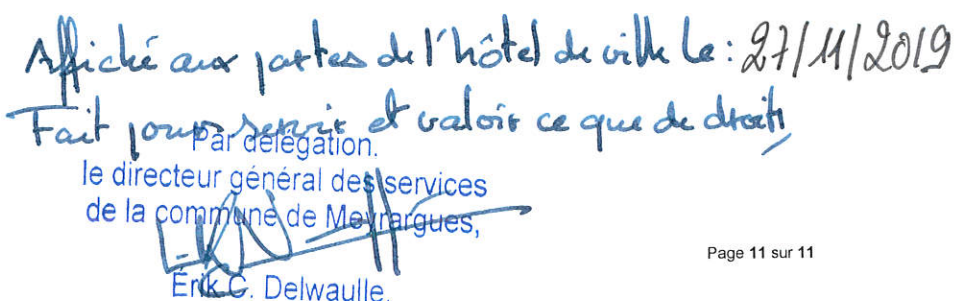 Affiché aux portes de l'hôtel de ville le : 27/11/2019
Fait pour servir et valoir ce que de droit,
Par délégation.
le directeur général des services
de la commune de Meyrargues,
Érik C. Delwaulle.
Page 11 sur 11